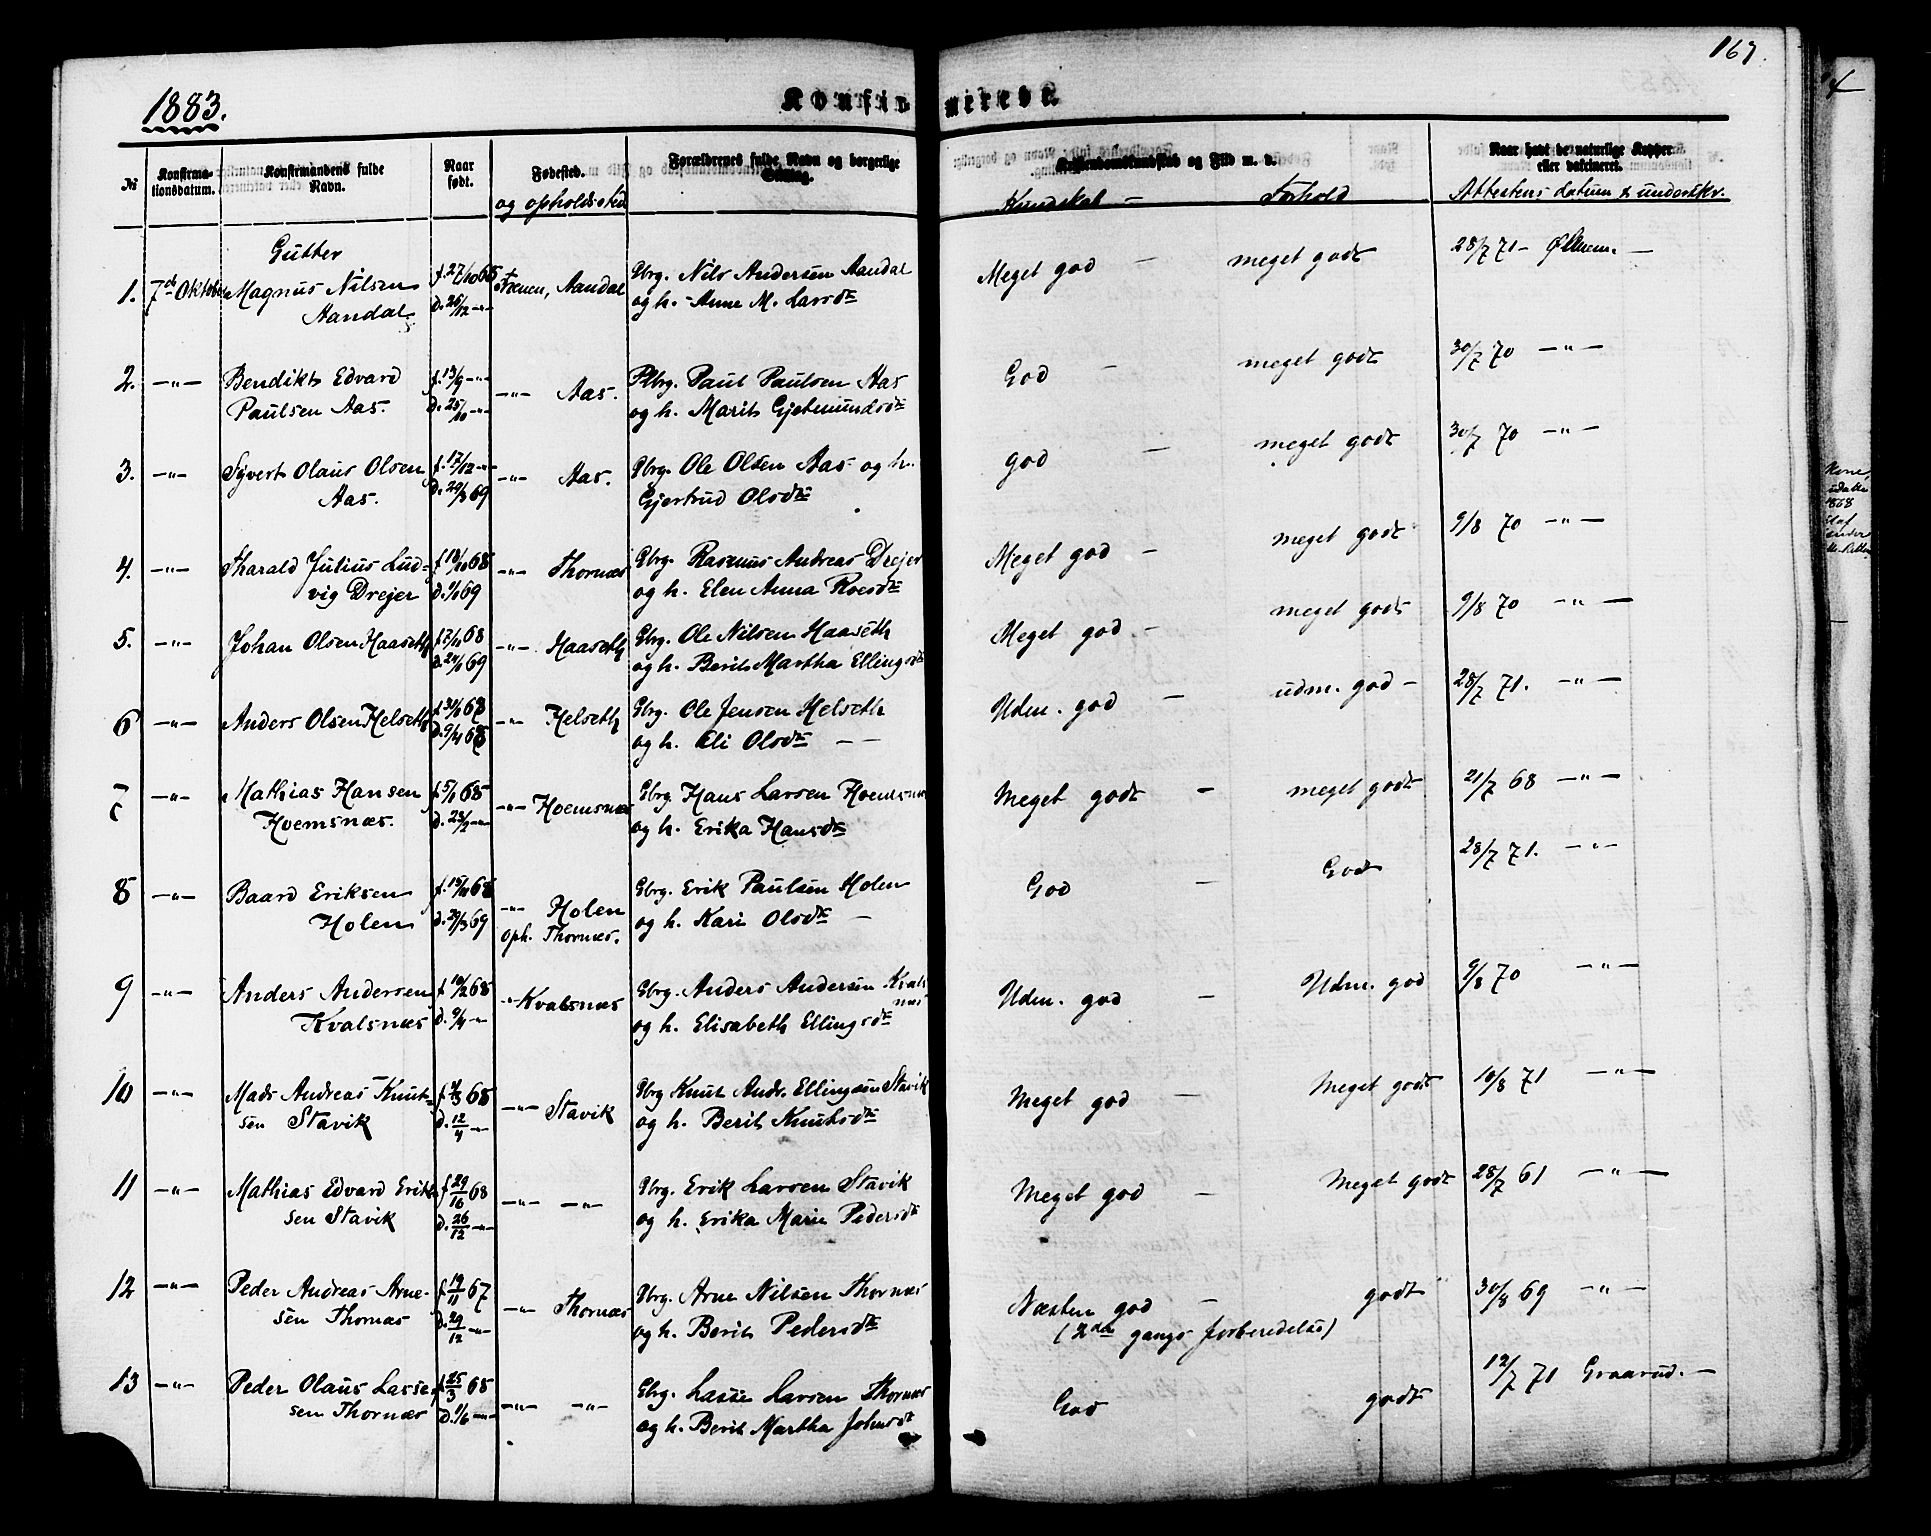 167.
1883.
Konfirmerede.
No
Konfirmationsdatum.
Konfirmandens fulde Navn.
Naar født.
Fødested.
og opholdssted
Forældrenes fulde Navn og borgerlige Stilling.
Kristendomskundskab og Flid m. v.
Kundskab — Forhold
Naar havt de naturlige Kopper eller vakcineret.
Attestens datum & underskr.
Gutter
1. 7de Oktober Magnus Nilsen f. 27/10 68 Aandal Gbrg. Nils Andersen Aandal Meget god — meget godt 28/7 71 —
Aandal d. 26/12 —"— og h. Anne M. Larsdtr
2. —"— Bendikt Edvard f. 13/9 —"— —"— Aas. Gbrg. Paul Paulsen Aas God — meget godt 30/7 70 —"—
Paulsen Aas. d. 25/10 —"— og h. Marit Gjetmundsdtr
3. —"— Syvert Olaus Olsen f. 17/12 —"— —"— Aas. Gbrg. Ole Olsen Aas og h. god — meget godt 30/7 70 —"—
Aas. d. 29/3 69 Gjertrud Olsdtr
4. —"— Harald Julius Lud- f. 18/10 68 —"— Thornæs Gbrg. Rasmus Andreas Drejer Meget god — meget godt 9/8 70 —"—
vig Drejer d. 1/1 69 og h. Elen Anna Roesdtr
5. —"— Johan Olsen Haaseth f. 7/11 68 —"— Haaseth Gbrg. Ole Nilsen Haaseth Meget god — meget godt 9/8 70 —"—
d. 24/1 69 og h. Berit Martha Ellingsdtr
6 —"— Anders Olsen Helseth —"— Helseth Gbrg. Ole Jensen Helseth Udm. god — udm. god — 28/7 71. —"—
og h. Eli Olsdtr — —
7 —"— Mathias Hansen f. 5/1 68 —"— Hoemsnæs Gbrg. Hans Larsen Hoemsnæs Meget godt — meget godt 21/7 68 —"—
Hoemsnæs. d. 23/2 —"— og h. Erika Hansdtr
8 —"— Baard Eriksen f. 15/11 68 —"— Holen Gbrg. Erik Paulsen Holen God — Godt 28/7 71. —"—
Holen d. 29/3 69 oph. Thornæs. og h. Kari Olsdtr —
9 —"— Anders Andersen f. 10/2 68 —"— Kvalsnæs Gbrg. Anders Andersen Kvalsnæs Udm. god — Udm. god 9/8 70 —"—
Kvalsnæs d. 9/4 —"— og h. Elisabeth Ellingsdtr
10 —"— Mads Andreas Knut- 68 —"— Stavik Gbrg Knut Andr. Ellingsen Stavik Meget god — Meget godt 10/8 71 —"—
sen Stavik d. 12/4 —"— og h. Berit Knutsdtr
11 —"— Mathias Edvard Erik- f. 29/10 68 —"— —"— Gbrg. Erik Larsen Stavik Meget god — Meget godt 28/7 61 —"—
sen Stavik d. 26/12 —"— og h. Erika Marie Pedersdtr
12 —"— Peder Andreas Arne- f. 19/11 67 —"— Thornæs Gbrg. Arne Nilsen Thornæs Næsten god — godt 30/8 69 —"—
sen Thornæs d. 29/12 —"— og h. Berit Pedersdtr (2den gangs forberedelse)
13 —"— Peder Olaus Lasse- f. 25/3 68 —"— —"— Gbrg. Lasse Larsen Thornæs God godt 12/7 71 Graarud. —
sen Thornæs d. 1/6 —"— og h. Berit Martha Johnsdtr